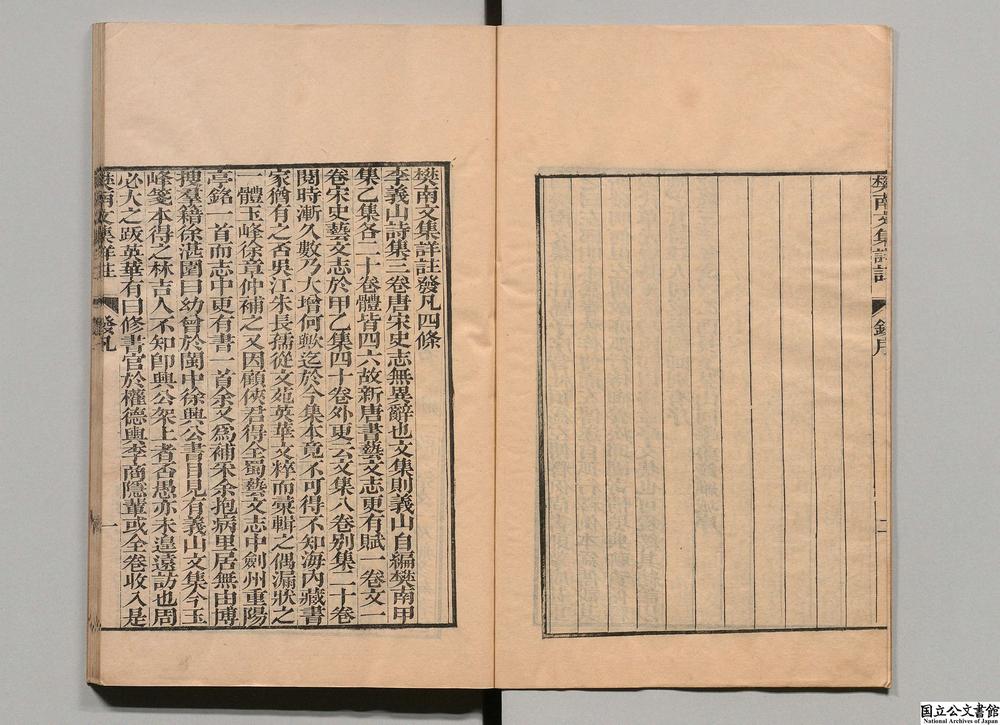 樊南文集詳註
錢序
二
樊南文集詳註發凡四條
李義山詩集三卷唐宋史志無異辭也文集則義山自編樊南甲
集乙集各二十卷體皆四六故新唐書藝文志更有賦一卷文一
卷宋史藝文志於甲乙集四十卷外更云文集八卷別集二十卷
閱時漸久數乃大增何歟迄於今集本竟不可得不知海內藏書
家猶有之否吳江朱長孺從文苑英華文粹而彙輯之偶漏狀之
一體玉峰徐章仲補之又因顧俠君得全蜀藝文志中劍州重陽
亭銘一首而志中更有書一首余又爲補采余抱病里居無由博
搜羣籍徐湛園曰幼曾於閩中徐興公書目見有義山文集今玉
峰箋本得之林吉人不知即興公架上者否愚亦未遑遠訪也周
必大之跋英華有曰修書官於權德輿李商隱輩或全卷收入是
樊南文集詳註
發凡
一
国立公文書館
National Archives of Japan